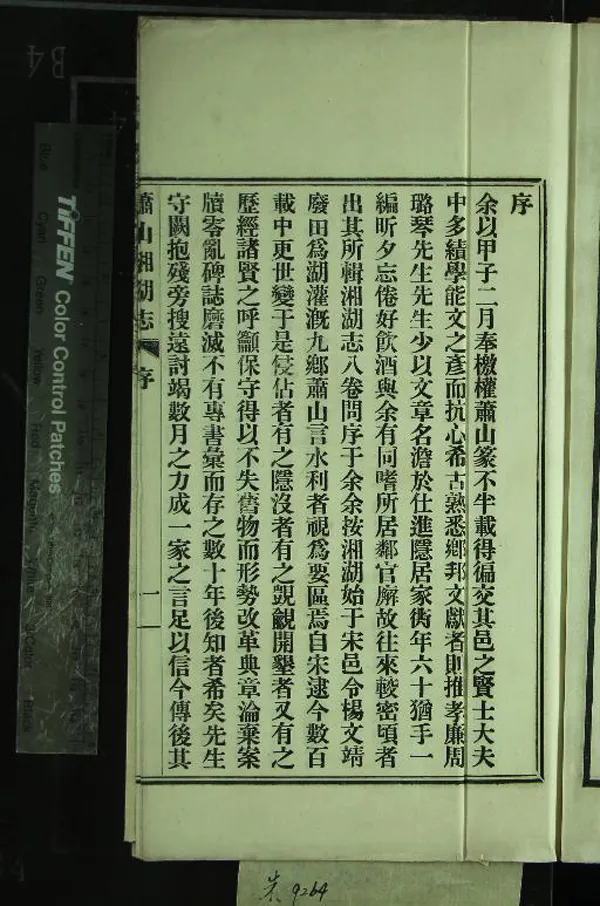 序
余以甲子二月奉檄權蕭山篆不半載得徧交其邑之賢士大夫
中多績學能文之彥而抗心希古熟悉鄉邦文獻者則推孝廉周
璐琴先生先生少以文章名澹於仕進隱居家衖年六十猶手一
編昕夕忘倦好飲酒與余有同嗜所居鄰官廨故往來較密頃者
出其所輯湘湖志八卷問序于余余按湘湖始于宋邑令楊文靖
廢田爲湖灌溉九鄉蕭山言水利者視爲要區焉自宋逮今數百
載中更世變于是侵佔者有之隱沒者有之覬覦開墾者又有之
歷經諸賢之呼籲保守得以不失舊物而形勢改革典章淪棄案
牘零亂碑誌磨滅不有專書彙而存之數十年後知者希矣先生
守闕抱殘旁搜遠討竭數月之力成一家之言足以信今傳後其
蕭山湘湖志 序 一
TIFFEN Color Control Patches
Blue
Cyan
Green
Yellow
Red
Magenta
Black
B4
9264